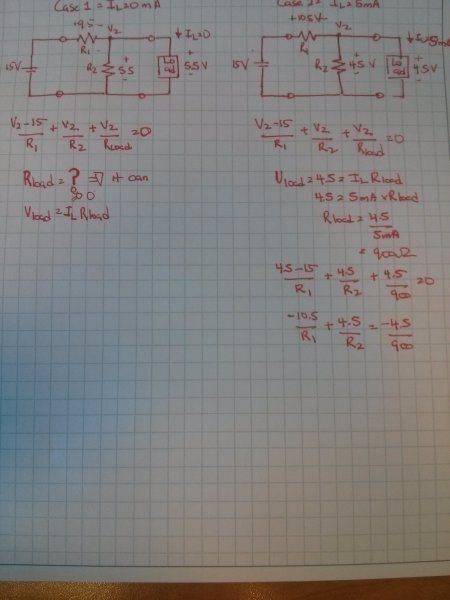 Case 1 = IL=0 mA
+9.5 -
V2
↓ IL=0
R1
15V
R2
+
5.5
-
Load
+
5.5V
-
(V2-15)/R1 + V2/R2 + V2/Rload = 0
Rload = ?
it can
∞ 0
Vload = IL Rload
IL=5mA
+10.5V-
V2
↓ IL=5mA
R1
15V
R2
+
4.5 V
-
Load
+
4.5V
-
(V2-15)/R1 + V2/R2 + V2/Rload = 0
Vload = 4.5 = IL Rload
4.5 = 5mA × Rload
Rload = 4.5/5mA
= 900Ω
(4.5-15)/R1 + 4.5/R2 + 4.5/900 = 0
-10.5/R1 + 4.5/R2 = -4.5/900